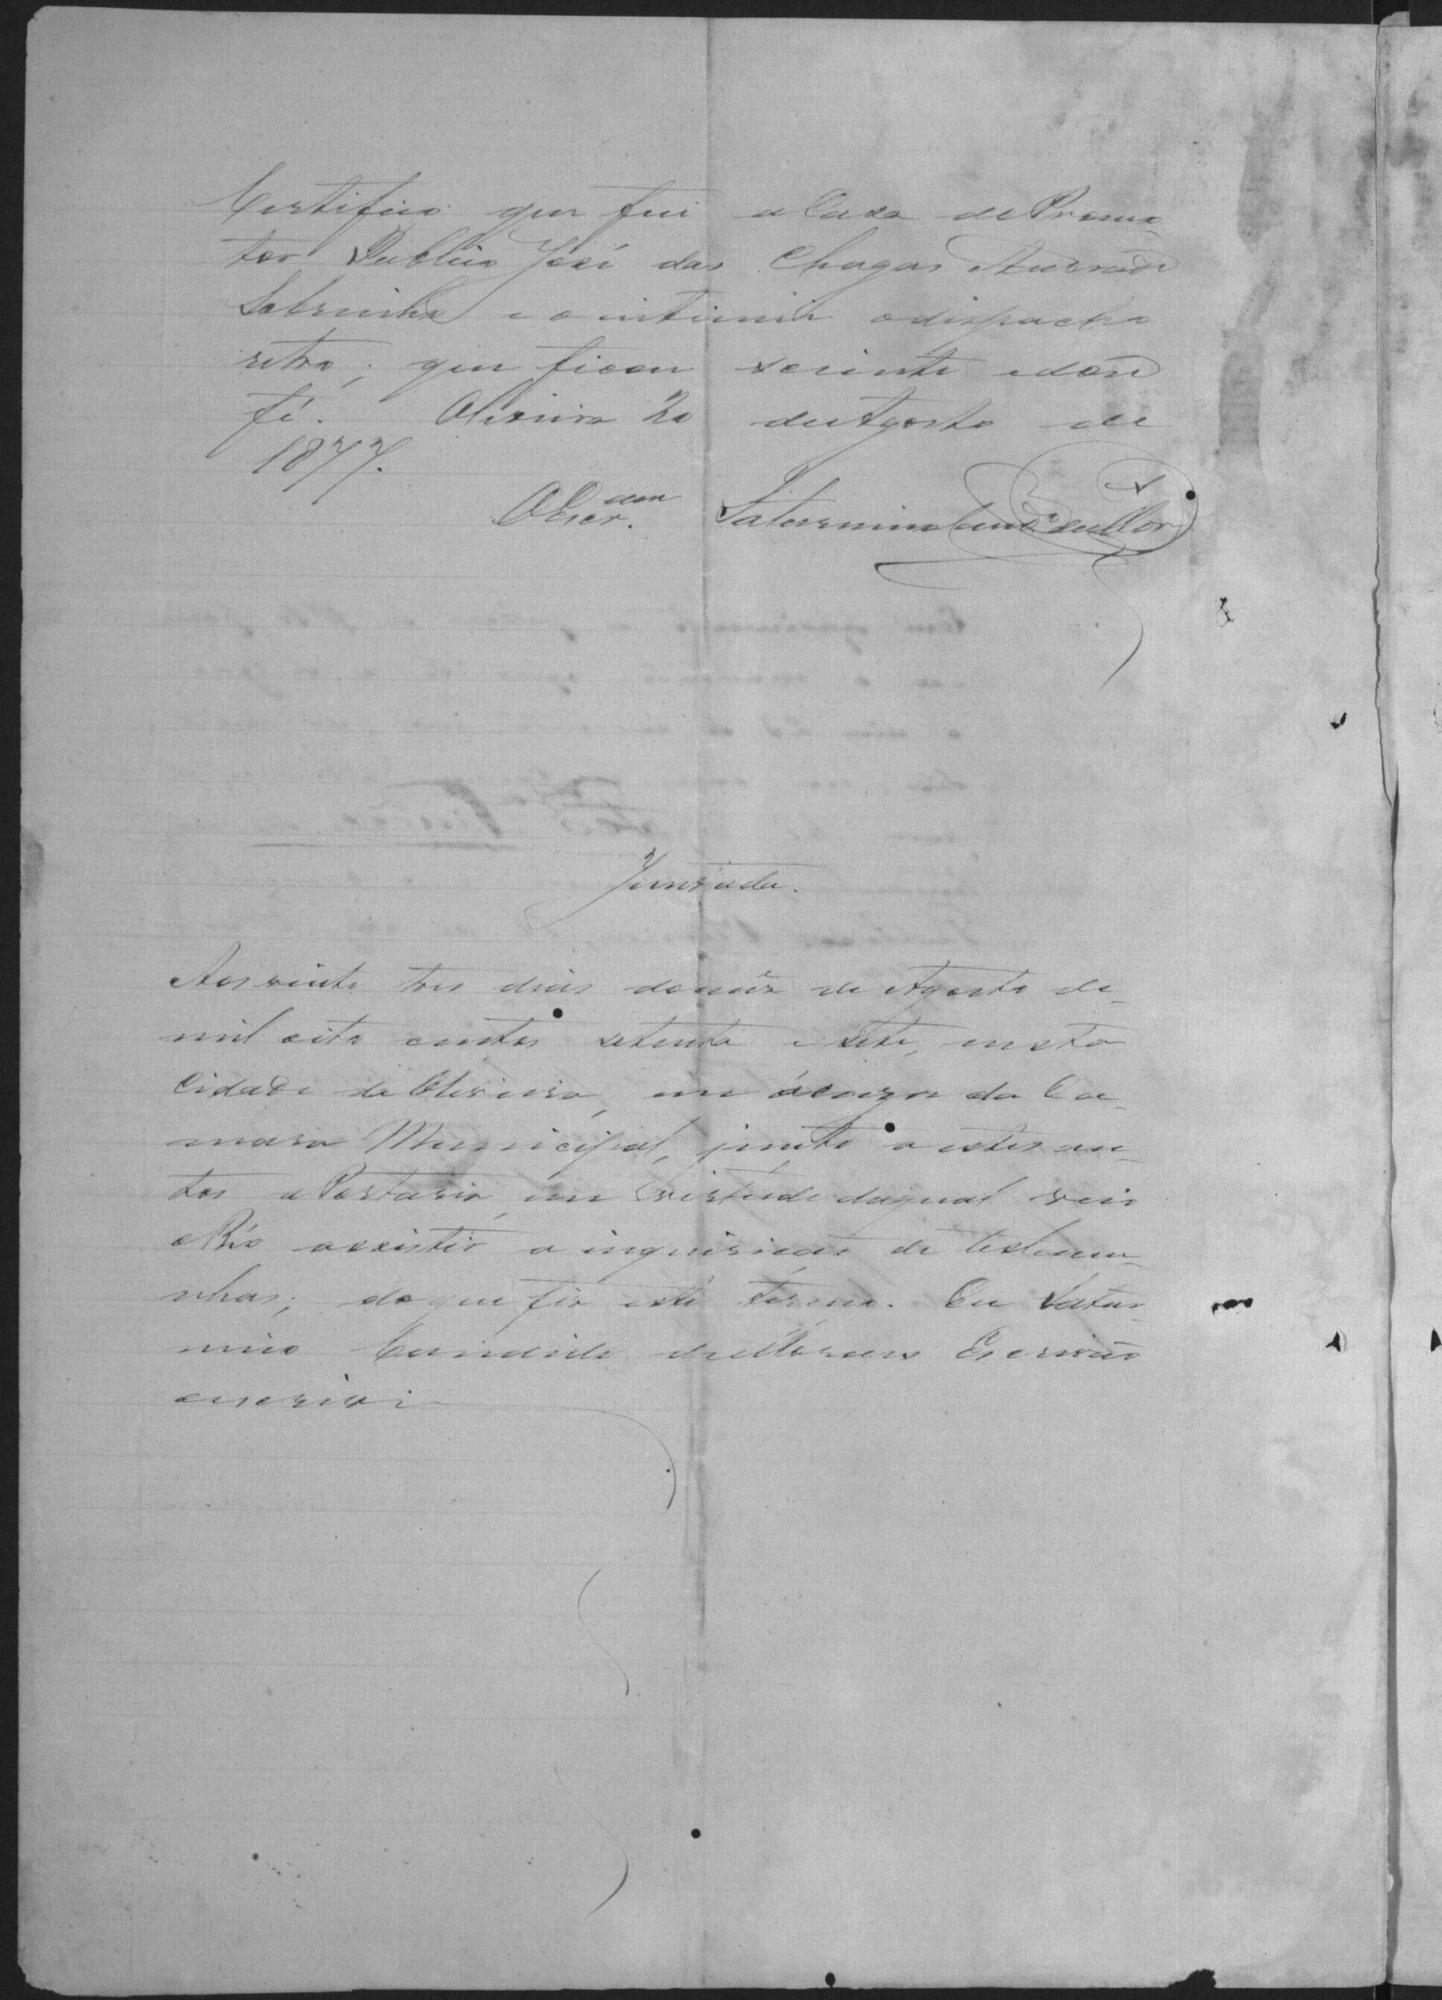 Certifico que fui a Casa do Promo-
tor Publico José das Chagas Andrade
Sobrinho e o intimei o dispacho
retro; que ficou sciente e dou
fé. Oliveira 20 de Agosto de
1877.
O Escr.am Saturnino Cand.o de Mor
Juntada.
Aos vinte tres dias do mêz de Agosto de
mil oito centos setenta e sete, nesta
Cidade de Oliveira, em da Ca-
mara Municipal, junto a estes au-
tos a Portaria em virtude da qual veio
o Réo assistir a inquirição de testemu-
nhas; do que fiz este termo. Eu Satur-
nino Candido de Moraes Escrivão
escrivi